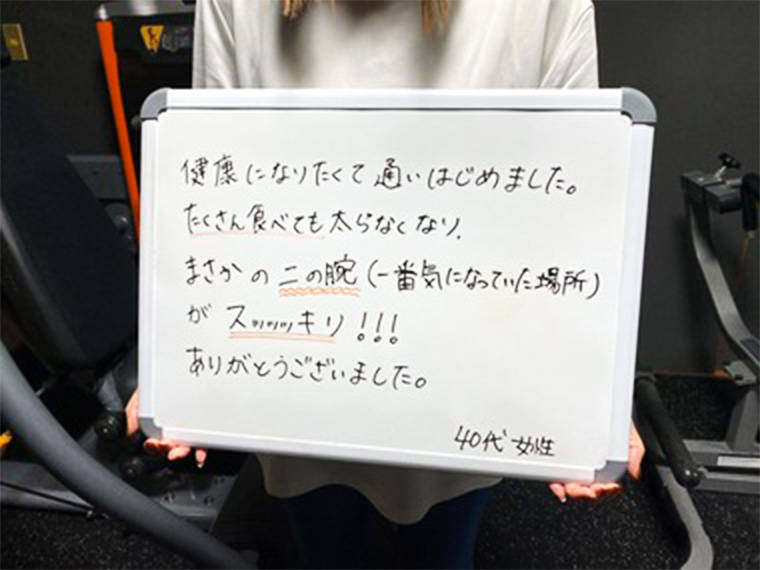 健康になりたくて通いはじめました。
たくさん食べても太らなくなり、
まさかの二の腕(一番気になっていた場所)
がスッッッッキリ!!!
ありがとうございました。
40代 女性